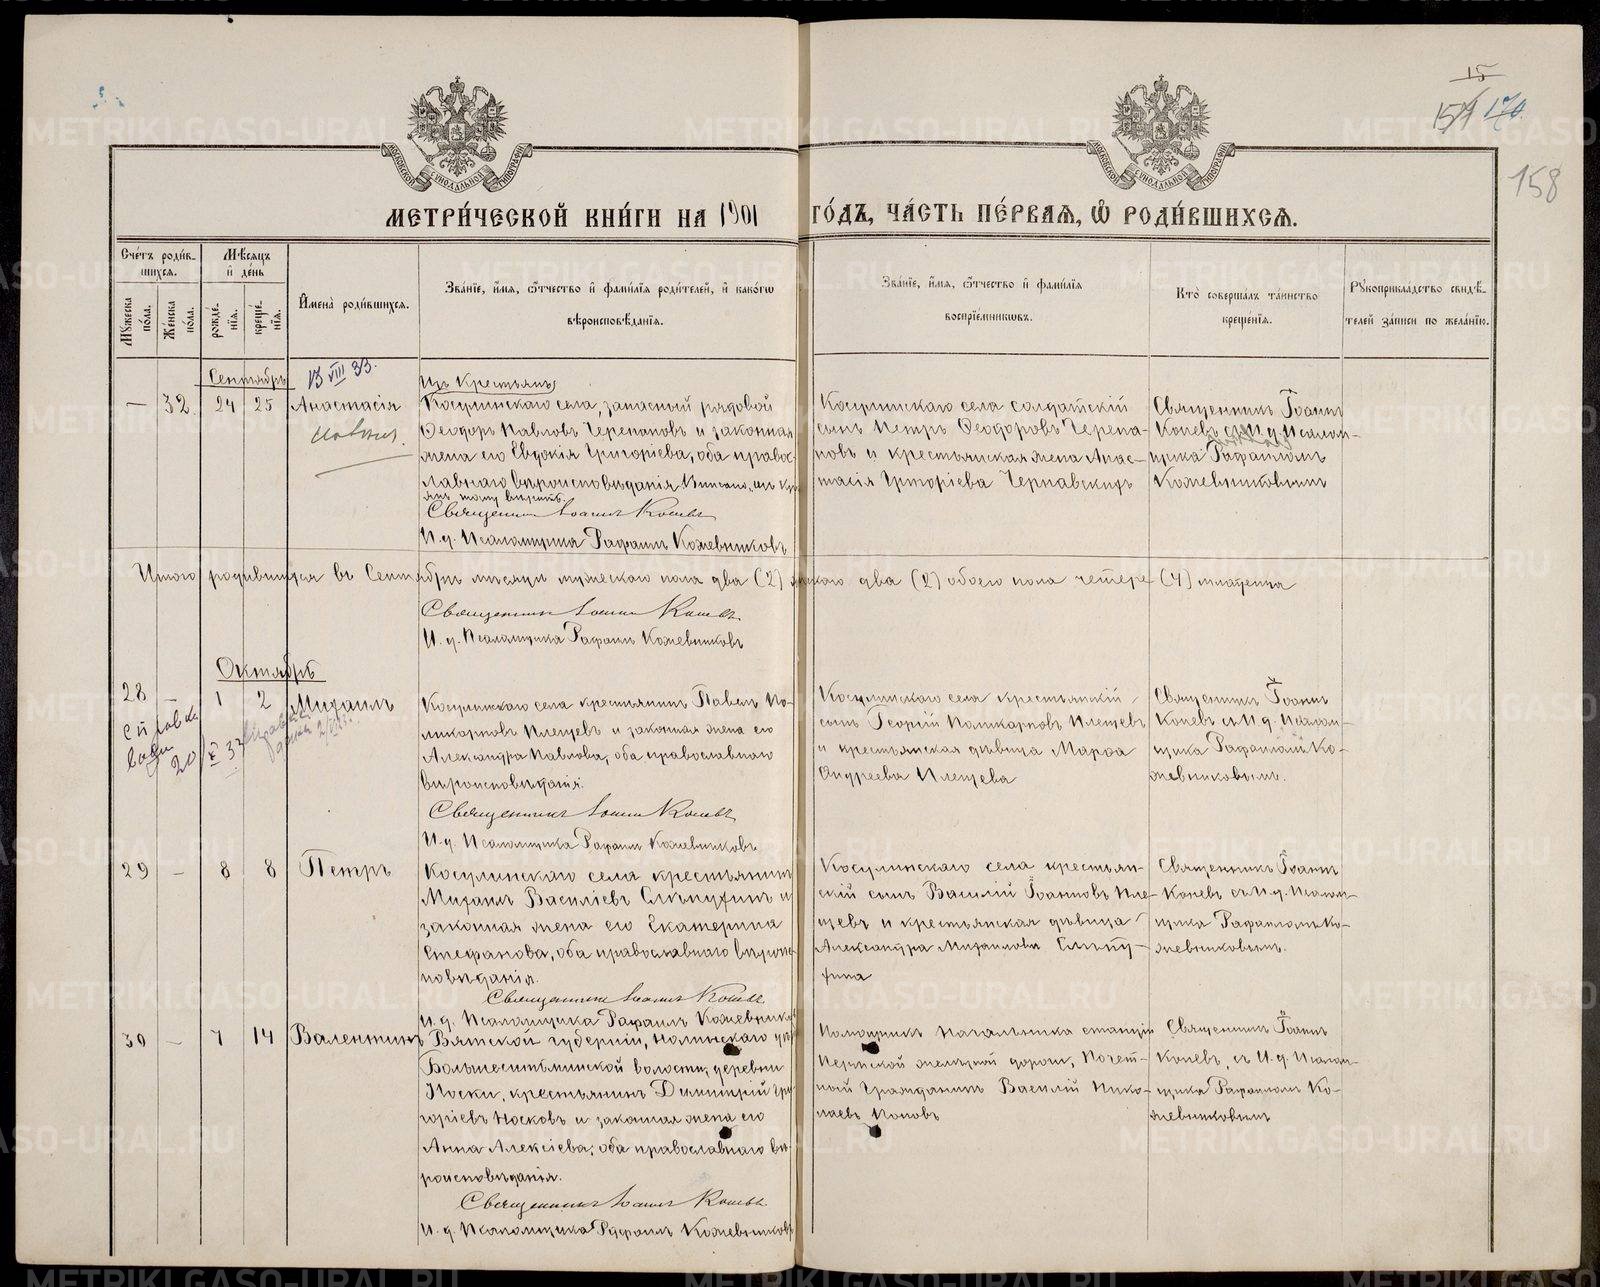 15
151 170
158
МЕТРИ́ЧЕСКОЙ КНИ́ГИ НА 1901 ГО́ДЪ, ЧА́СТЬ ПЕ́РВАѦ, Ѽ РОДИ́ВШИХСѦ.
Сче́тъ роди́вшихсѧ.
Мꙋ́жеска по́ла.
Же́нска по́ла.
Мѣ́сѧцъ и҆ де́нь
рожде́нїѧ.
креще́нїѧ.
И҆мена̀ роди́вшихсѧ.
Зва́нїе, и҆́мѧ, ѻ҆́тчество и҆ фами́лїѧ роди́телей, и҆ како́гѡ
вѣроисповѣ́данїѧ.
Зва́нїе, и҆́мѧ, ѻ҆́тчество и҆ фами́лїѧ
воспрїе́мникѡвъ.
Кто̀ соверша́лъ та́инство
креще́нїѧ.
Рꙋкоприкла́дство свидѣ́телей за́писи по жела́нїю.
Сентябрь
13 VIII 33.
Изъ крестьянъ
— 32. 24 25 Анастасія
Косулинскаго села, запасный рядовой
Ѳеодоръ Павловъ Черепановъ и законная
жена его Евдокія Григоріева, оба право-
славнаго вѣроисповѣданія
Священникъ Іоаннъ Коневъ
И. д. Псаломщика Рафаилъ Кожевниковъ
Косулинскаго села солдатскій
сынъ Петръ Ѳеодоровъ Черепа-
новъ и крестьянская жена Анас-
тасія Григоріева Чернавскихъ
Священникъ Іоаннъ
Коневъ съ И. д. Псалом-
щика Рафаиломъ
Кожевниковымъ
Итого родившихся въ Сентябрѣ мѣсяцѣ мужескаго пола два (2) женскаго два (2) обоего пола четыре (4) младенца
Священникъ Іоаннъ Коневъ
И. д. Псаломщика Рафаилъ Кожевниковъ
Октябрь
28 — 1 2 Михаилъ
20/X 37
Косулинскаго села крестьянинъ Павелъ По-
ликарповъ Плещевъ и законная жена его
Александра Павлова, оба православнаго
вѣроисповѣданія.
Священникъ Іоаннъ Коневъ
И. д. Псаломщика Рафаилъ Кожевниковъ
Косулинскаго села крестьянскій
сынъ Георгій Поликарповъ Плещевъ
и крестьянская дѣвица Марѳа
Андреева Плещева
Священникъ Іоаннъ
Коневъ съ И. д. Псалом-
щика Рафаиломъ Ко-
жевниковымъ.
29 — 8 8 Петръ
Косулинскаго села крестьянинъ
Михаилъ Василіевъ Слѣпухинъ и
законная жена его Екатерина
Стефанова, оба православнаго вѣроис-
повѣданія.
Священникъ Іоаннъ Коневъ
И. д. Псаломщика Рафаилъ Кожевниковъ
Косулинскаго села крестьян-
скій сынъ Василій Іоанновъ Пле-
щевъ и крестьянская дѣвица
Александра Михаилова Слѣпу-
хина
Священникъ Іоаннъ
Коневъ съ И. д. Псалом-
щика Рафаиломъ Ко-
жевниковымъ.
30 — 7 14 Валентинъ
Вятской губерніи, Нолинскаго уѣз.
Большеситьминской волости, деревни
Носки, крестьянинъ Димитрій Гри-
горіевъ Носковъ и законная жена его
Анна Алексіева, оба православнаго вѣ-
роисповѣданія.
Священникъ Іоаннъ Коневъ
И. д. Псаломщика Рафаилъ Кожевниковъ
Помощникъ Начальника станціи
Пермской желѣзной дороги, Почет-
ный Гражданинъ Василій Нико-
лаевъ Поповъ
Священникъ Іоаннъ
Коневъ, съ И. д. Псалом-
щика Рафаиломъ Ко-
жевниковымъ
METRIKI.GASO-URAL.RU